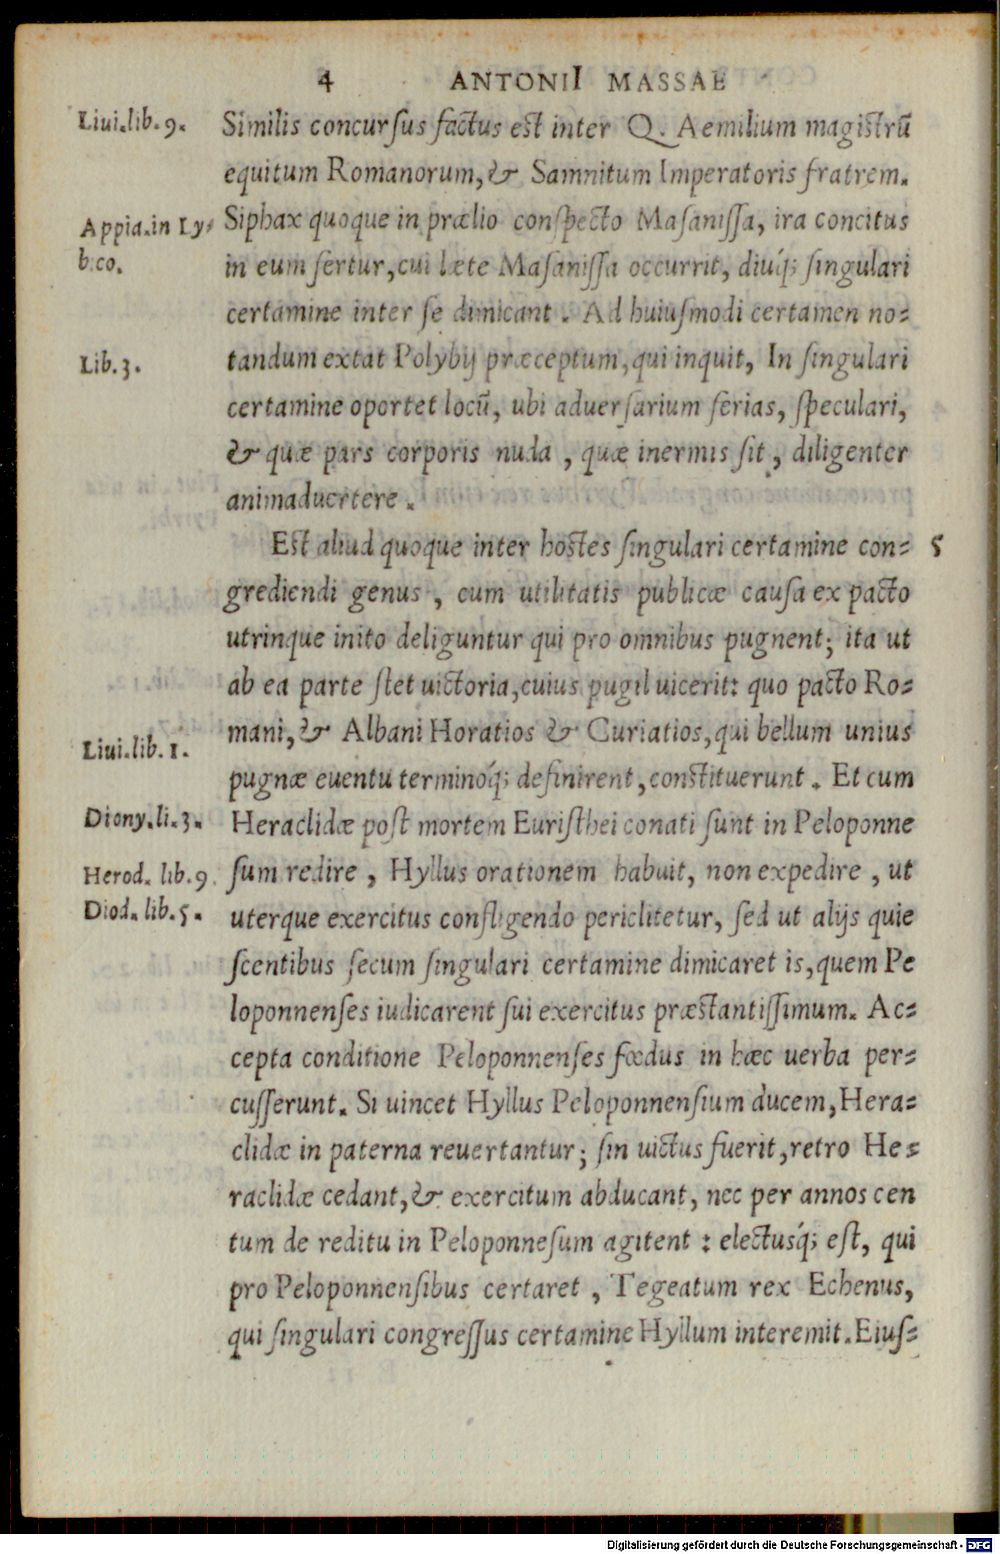 4 ANTONII MASSAE
Liui.lib.9.
Similis concursus factus est inter Q. Aemilium magistrũ
equitum Romanorum, & Samnitum Imperatoris fratrem.
Appia.in Ly⸗
b.co.
Siphax quoque in prælio conspecto Masanissa, ira concitus
in eum fertur, cui læte Masanissa occurrit, diuq́; singulari
certamine inter se dimicant. Ad huiusmodi certamen no⸗
Lib.3.
tandum extat Polybij præceptum, qui inquit, In singulari
certamine oportet locũ, ubi aduersarium ferias, speculari,
& quæ pars corporis nuda, quæ inermis sit, diligenter
animaduertere.
Est aliud quoque inter hostes singulari certamine con⸗ 5
grediendi genus, cum utilitatis publicæ causa ex pacto
utrinque inito deliguntur qui pro omnibus pugnent; ita ut
ab ea parte stet uictoria, cuius pugil uicerit: quo pacto Ro⸗
Liui.lib.1.
mani, & Albani Horatios & Curiatios, qui bellum unius
pugnæ euentu terminoq́; definirent, constituerunt. Et cum
Diony.li.3.
Heraclidæ post mortem Euristhei conati sunt in Peloponne
Herod. lib.9.
Diod. lib.5.
sum redire, Hyllus orationem habuit, non expedire, ut
uterque exercitus confligendo periclitetur, sed ut alijs quie
scentibus secum singulari certamine dimicaret is, quem Pe
loponnenses iudicarent sui exercitus præstantissimum. Ac⸗
cepta conditione Peloponnenses fœdus in hæc uerba per⸗
cusserunt. Si uincet Hyllus Peloponnensium ducem, Hera⸗
clidæ in paterna reuertantur; sin uictus fuerit, retro He⸗
raclidæ cedant, & exercitum abducant, nec per annos cen
tum de reditu in Peloponnesum agitent: electusq́; est, qui
pro Peloponnensibus certaret, Tegeatum rex Echenus,
qui singulari congressus certamine Hyllum interemit. Eius⸗
Digitalisierung gefördert durch die Deutsche Forschungsgemeinschaft - DFG